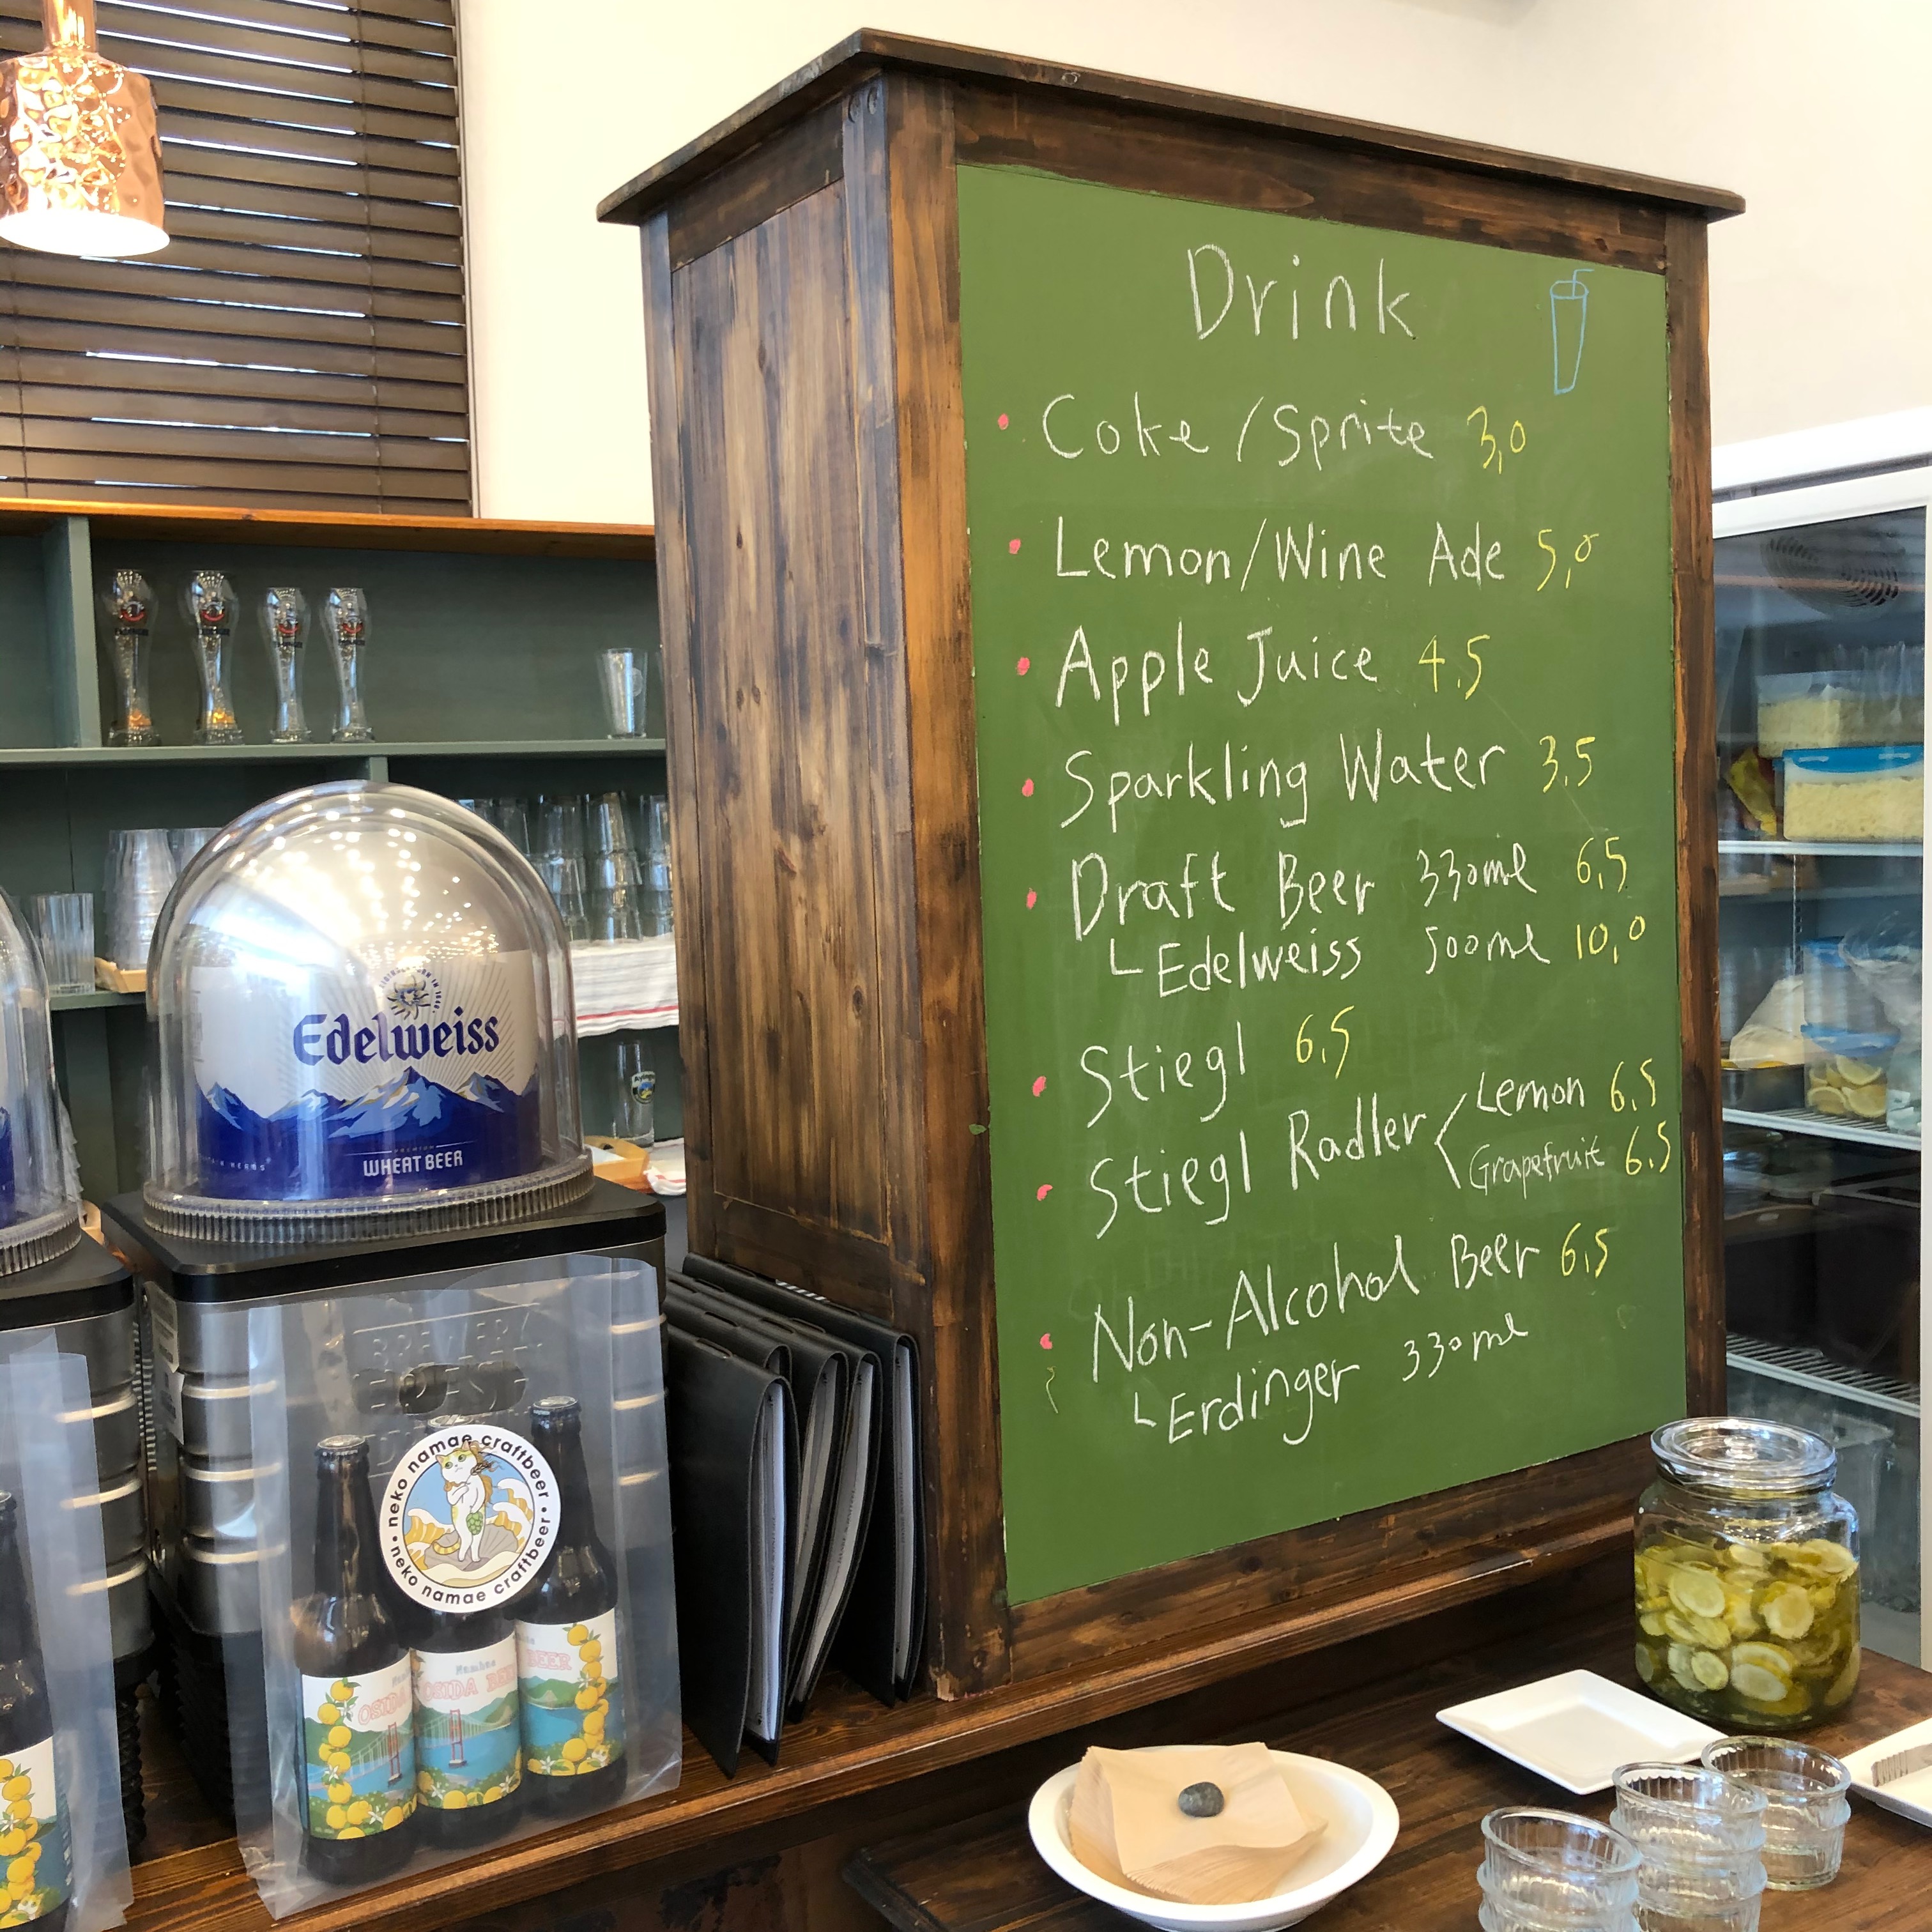 Drink
Coke/Sprite 3,0
Lemon/Wine Ade 5,0
Apple Juice 4.5
Sparkling Water 3.5
Draft Beer 330ml 6,5
Edelweiss 500ml 10,0
Stiegl 6,5
Stiegl Radler Lemon 6,5
Grapefruit 6,5
Non-Alcohol Beer 6,5
Erdinger 330ml
Edelweiss
PREMIUM
WHEAT BEER
neko namae craftbeer
neko namae craftbeer
Namhae
OSIDA BEER
BEER